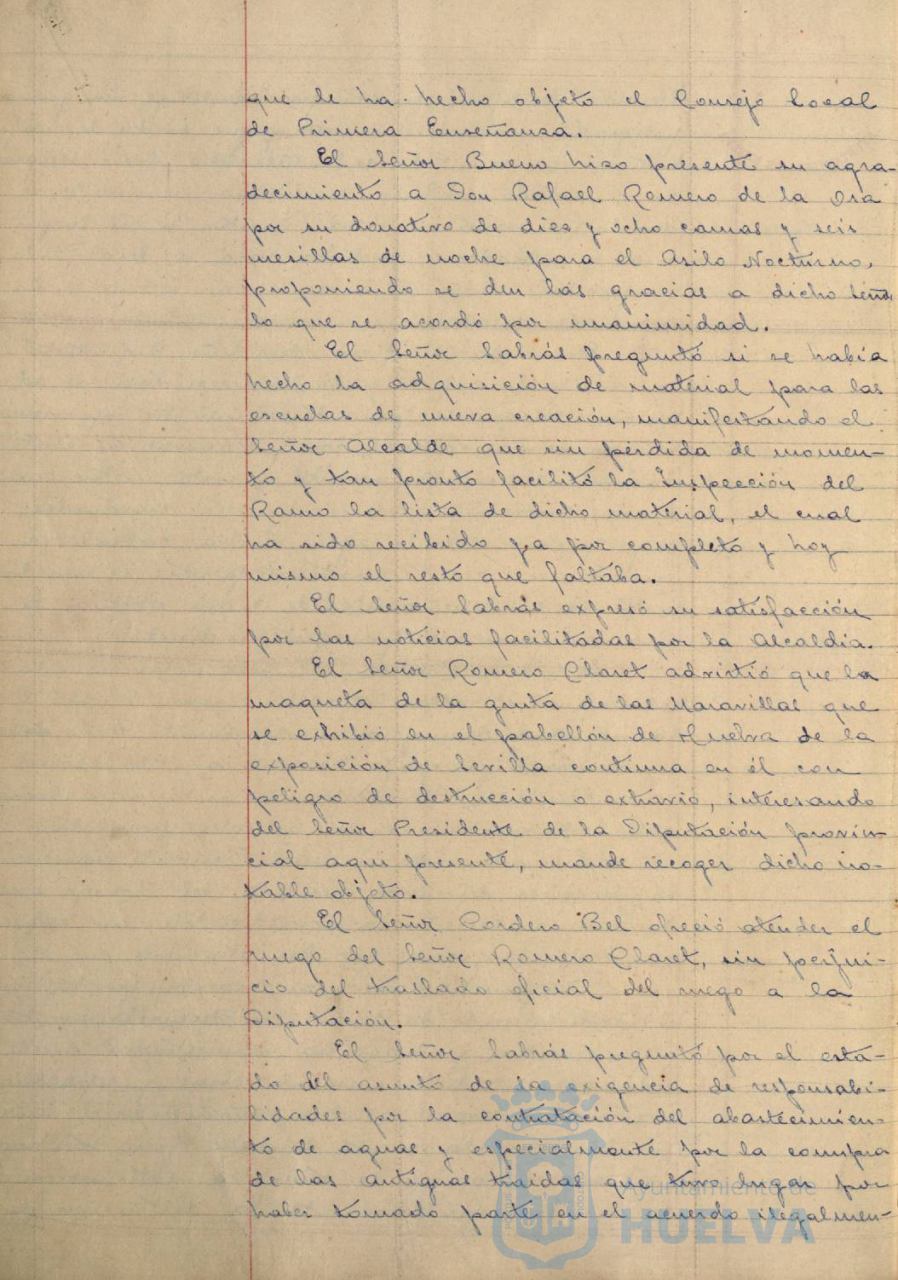 que le ha hecho objeto el Consejo Local
de Primera Enseñanza.
El Señor Bueno hizo presente su agra-
decimiento a Don Rafael Romero de la Osa
por su donativo de diez y ocho camas y seis
mesillas de noche para el Asilo Nocturno,
proponiendo se den las gracias a dicho Señor
lo que se acordó por unanimidad.
El Señor Sabrás preguntó si se había
hecho la adquisición de material para las
escuelas de nueva creación, manifestando el
Señor Alcalde que sin pérdida de momen-
to y tan pronto facilitó la Inspección del
Ramo la lista de dicho material, el cual
ha sido recibido ya por completo y hoy
mismo el resto que faltaba.
El Señor Sabrás expresó su satisfacción
por las noticias facilitadas por la Alcaldía.
El Señor Romero Claret advirtió que la
maqueta de la gruta de las Maravillas que
se exhibió en el pabellón de Huelva de la
exposición de Sevilla continua en él con
peligro de destrucción o extravio, interesando
del Señor Presidente de la Diputación provin-
cial aqui presente, mande recoger dicho no-
table objeto.
El Señor Cordero Bel ofreció atender el
ruego del Señor Romero Claret, sin perjui-
cio del traslado oficial del ruego a la
Diputación.
El Señor Sabrás preguntó por el esta-
do del asunto de la exigencia de responsabi-
lidades por la contratación del abastecimien-
to de aguas y especialmente por la compra
de las antiguas traidas que tuvo lugar por
haber tomado parte en el acuerdo ilegalmen-
Ayuntamiento de
HUELVA